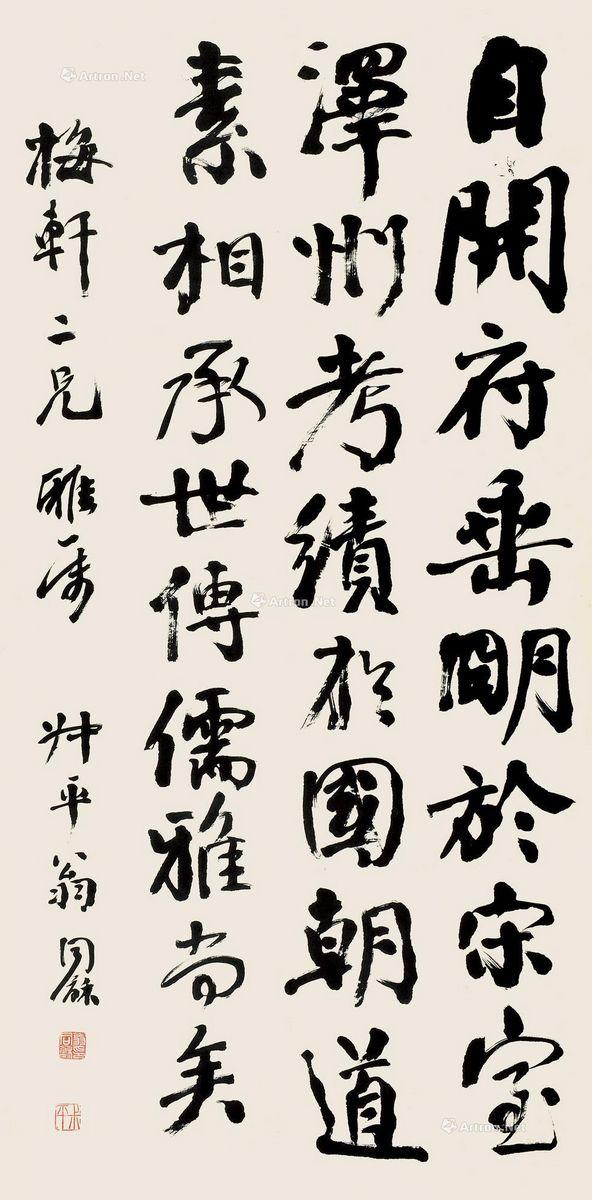 自開府垂明於宋室
澤州考績於國朝道
素相承世傳儒雅尚矣
梅軒二兄雅屬
叔平翁同龢
Artron.Net
Artron.Net
Artron.Net